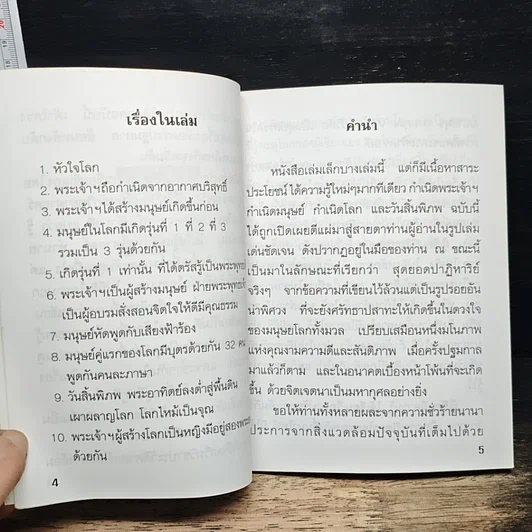 เรื่องในเล่ม
1. หัวใจโลก
2. พระเจ้าฯถือกำเนิดจากอากาศบริสุทธิ์
3. พระเจ้าฯได้สร้างมนุษย์เกิดขึ้นก่อน
4. มนุษย์ในโลกมีเกิดรุ่นที่ 1 ที่ 2 ที่ 3
รวมเป็น 3 รุ่นด้วยกัน
5. เกิดรุ่นที่ 1 เท่านั้น ที่ได้ตรัสรู้เป็นพระพุทธเจ้า
6. พระเจ้าฯเป็นผู้สร้างมนุษย์ ฝ่ายพระพุทธเจ้า
เป็นผู้อบรมสั่งสอนจิตใจให้ดีมีคุณธรรม
7. มนุษย์หัดพูดกับเสียงฟ้าร้อง
8. มนุษย์คู่แรกของโลกมีบุตรด้วยกัน 32 คน
พูดกันคนละภาษา
9. วันสิ้นพิภพ พระอาทิตย์ลงต่ำสู่พื้นดิน
เผาผลาญโลก โลกไหม้เป็นจุณ
10. พระเจ้าฯผู้สร้างโลกเป็นหญิงมีอยู่สองพระองค์
ด้วยกัน
4
คำนำ
หนังสือเล่มเล็กบางเล่มนี้ แต่ก็มีเนื้อหาสาระ
ประโยชน์ ได้ความรู้ใหม่ๆมากทีเดียว กำเนิดพระเจ้าฯ
กำเนิดมนุษย์ กำเนิดโลก และวันสิ้นพิภพ ฉบับนี้
ได้ถูกเปิดเผยดีแผ่มาสู่สายตาท่านผู้อ่านในรูปเล่ม
เด่นชัดเจน ดังปรากฏอยู่ในมือของท่าน ณ ขณะนี้
เป็นมาในลักษณะที่เรียกว่า สุดยอดปาฏิหาริย์
จริงๆ จากข้อความที่เขียนไว้ล้วนแต่เป็นรูปรอยอัน
น่าพิศวง ที่จะยังศรัทธาปสาทะให้เกิดขึ้นในดวงใจ
ของมนุษย์โลกทั้งมวล เปรียบเสมือนหนึ่งมโนภาพ
แห่งคุณงามความดีและสันติภาพ เมื่อครั้งปฐมกาล
มาแล้วก็ตาม และในอนาคตเบื้องหน้าโพ้นที่จะเกิด
ขึ้น ด้วยจิตเจตนาเป็นมหากุศลอย่างยิ่ง
ขอให้ท่านทั้งหลายผละจากความชั่วร้ายนานา
ประการจากสิ่งแวดล้อมปัจจุบันที่เต็มไปด้วย
5